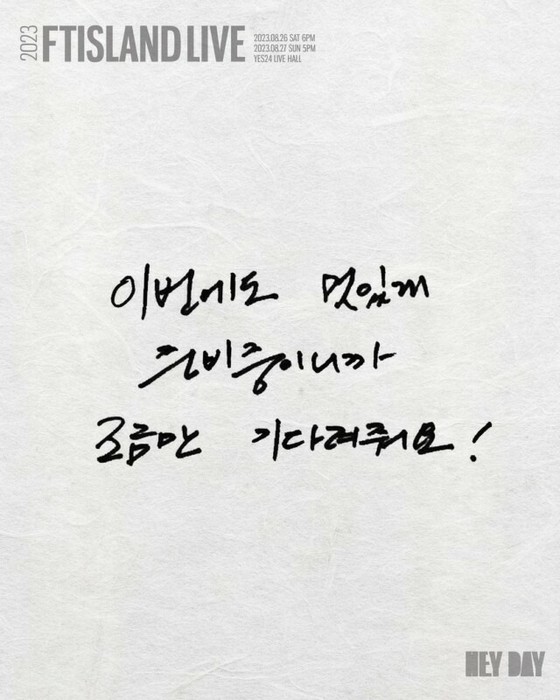 2023
FTISLAND LIVE
2023.08.26 SAT 6PM
2023.08.27 SUN 5PM
YES24 LIVE HALL
이번에도 멋있게
준비중이니까
조금만 기다려줘요!
HEY DAY